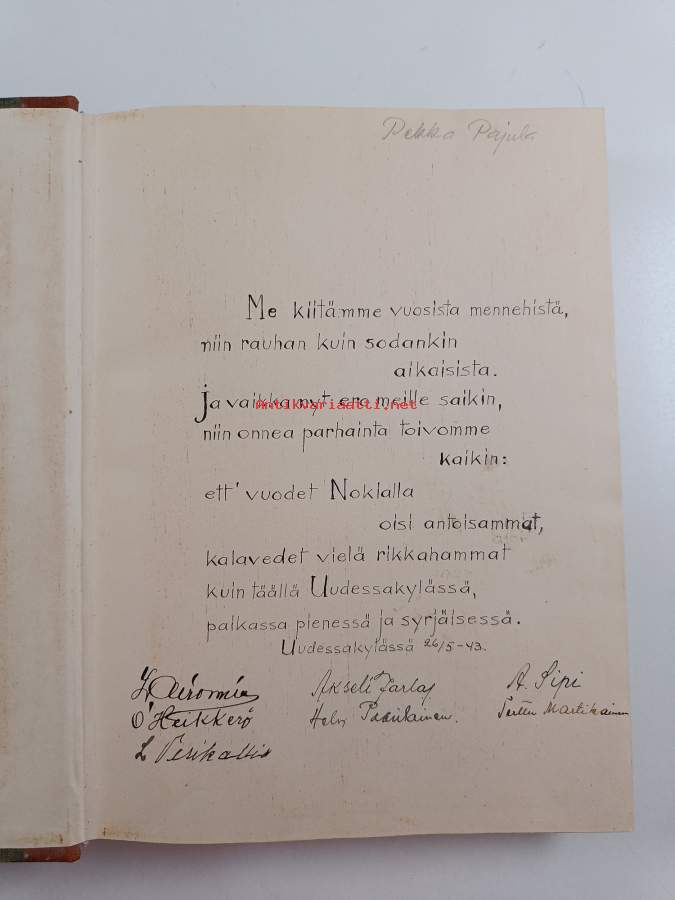 Pekka Pajula
Me kiitämme vuosista mennehistä,
niin rauhan kuin sodankin
aikaisista.
Ja vaikka nyt ero meille saikin,
Antikvariaatti.net
niin onnea parhainta toivomme
kaikin:
ett' vuodet Nokialla
oisi antoisammat,
kalavedet vielä rikkahammat
kuin täällä Uudessakylässä,
paikassa pienessä ja syrjäisessä.
Uudessakylässä 26/5-43.
Akseli
A. Sipi
O Heikkerö
Martikainen